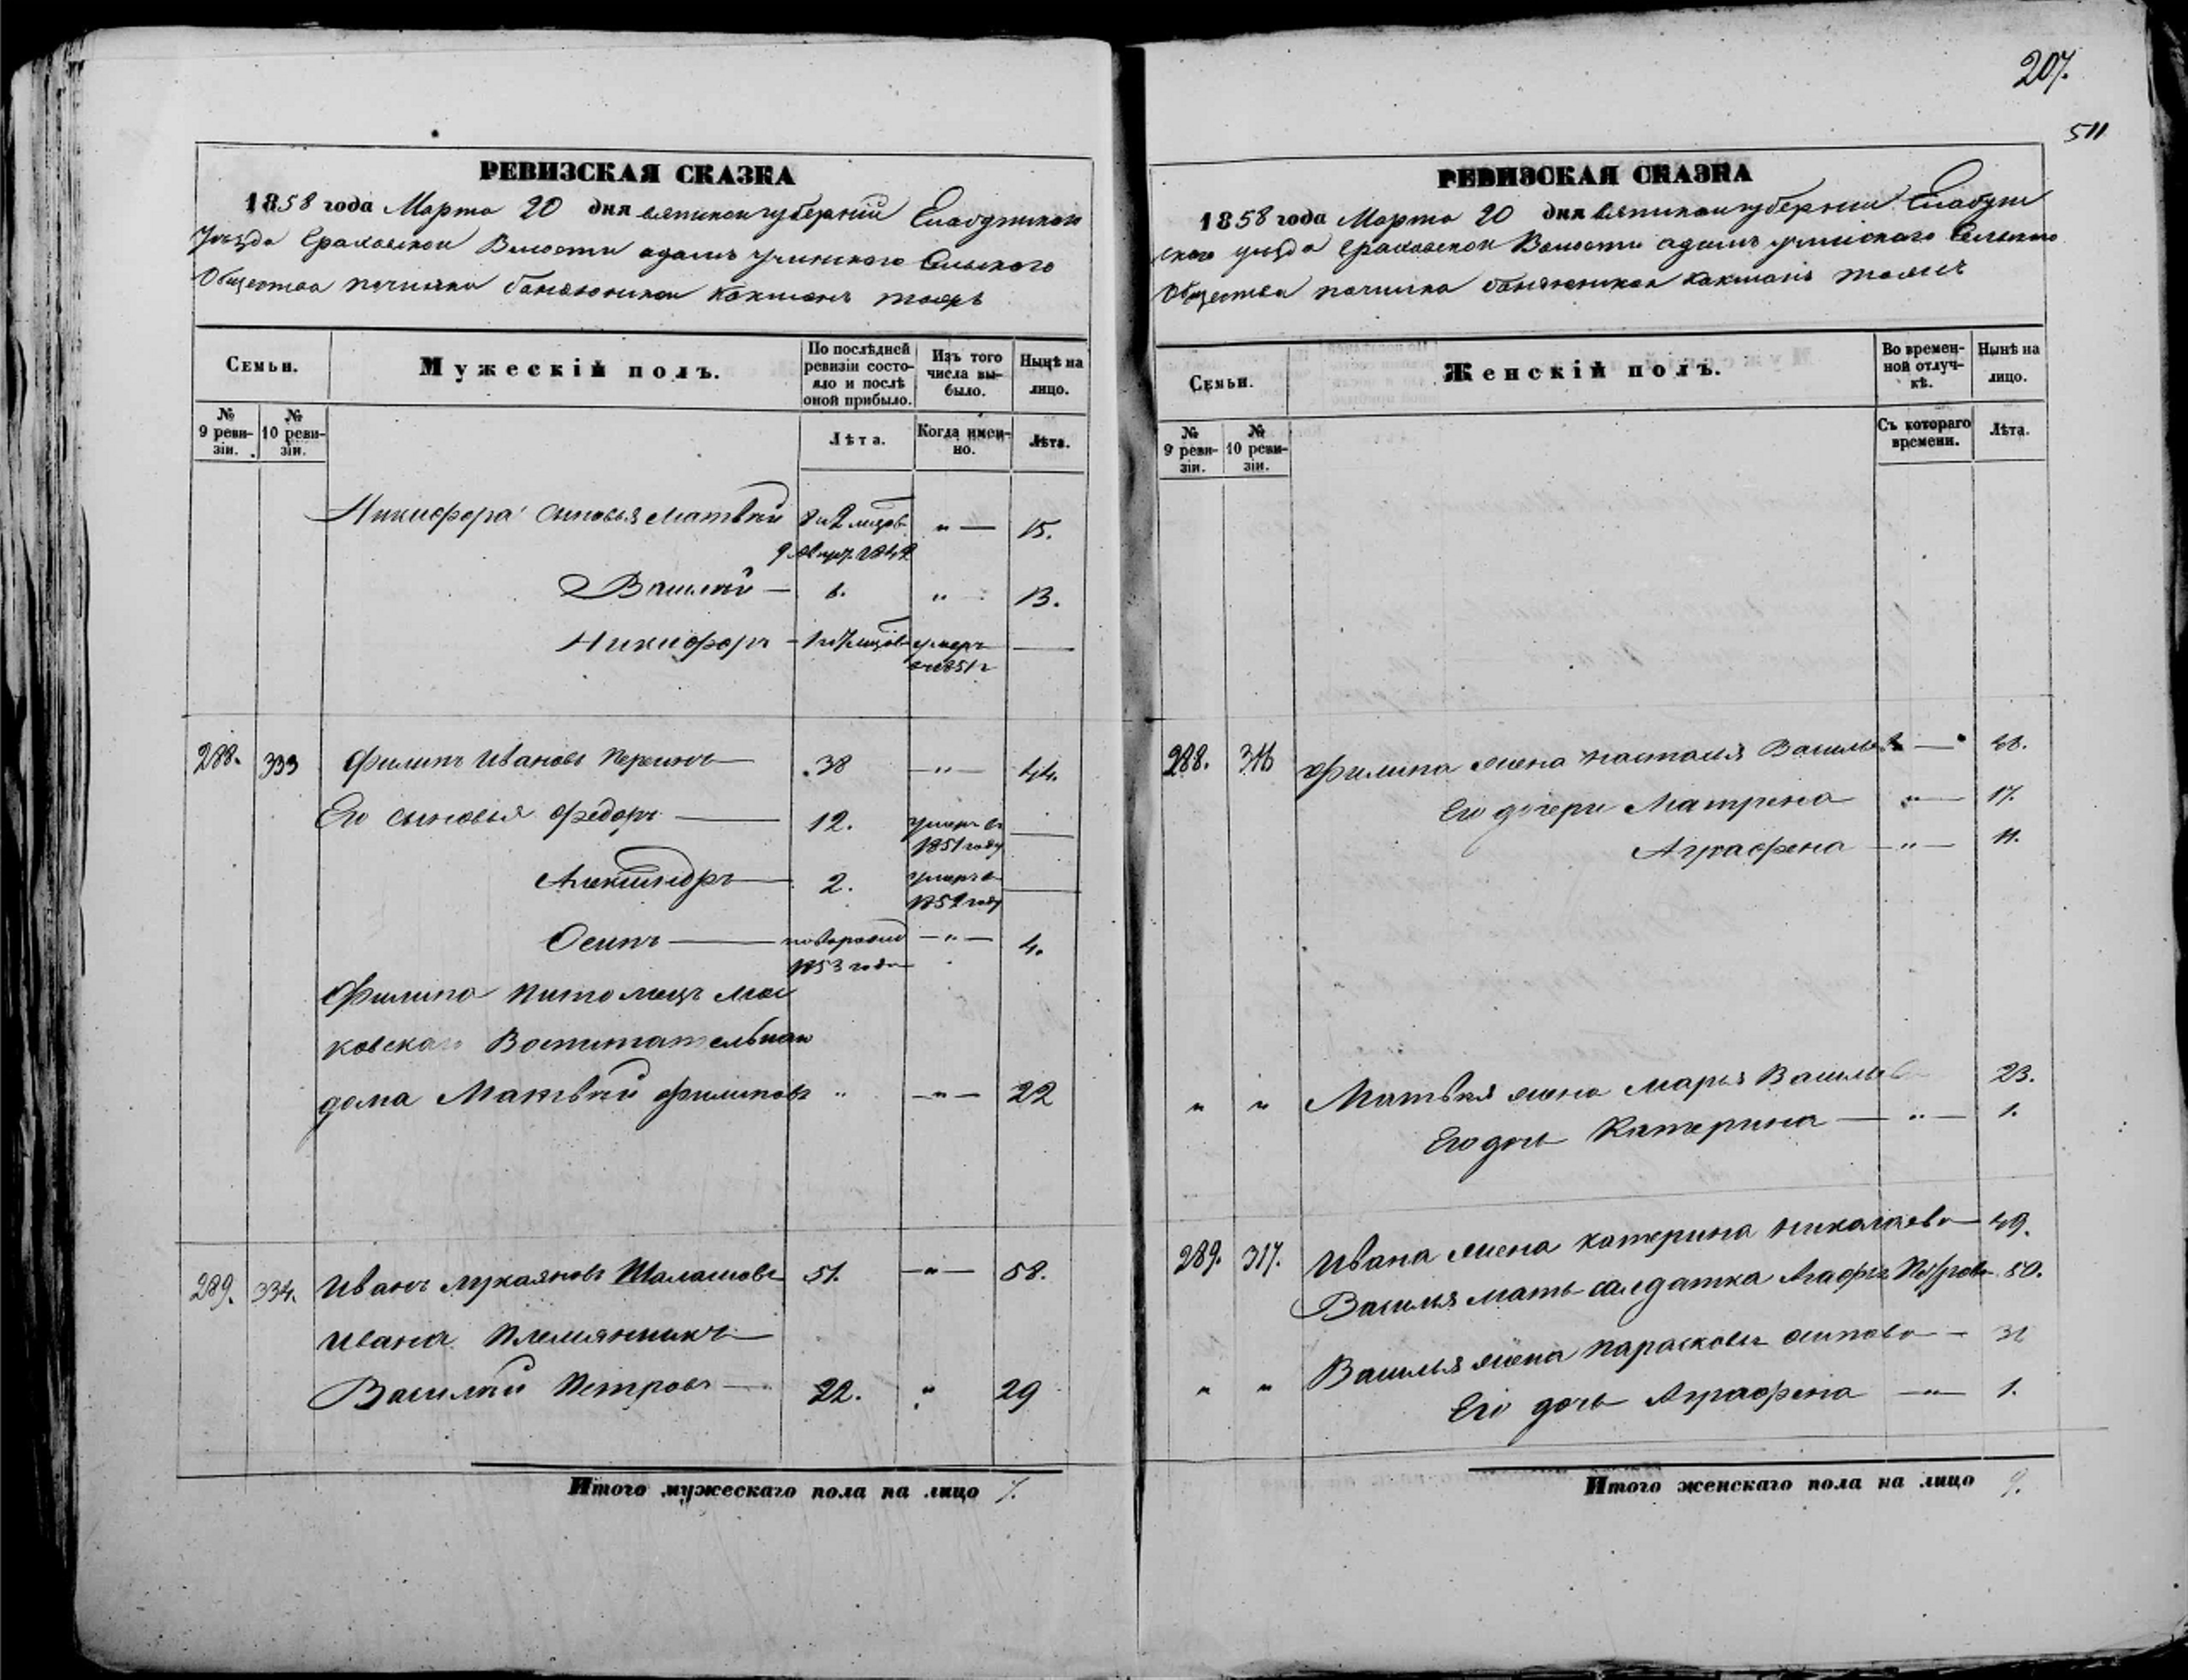 207.
511
РЕВИЗСКАЯ СКАЗКА
1858 года Марта 20 дня вятской губернии Елабужскаго
уезда Граховской Волости адамъ учинского Сельского
Общества починка банятникои Какшанъ тожъ
Семьи.
Мужескій полъ.
По послѣдней ревизіи состояло и послѣ оной прибыло.
Изъ того числа выбыло.
Нынѣ на лицо.
№ 9 ревизіи.
№ 10 ревизіи.
Лѣта.
Когда именно.
Лѣта.
Никифора сыновья Матвѣй 15.
Василий — 6. " 13.
Никифоръ — умеръ въ 1851 г —
288. 333 Филипъ Ивановъ 38 — " — 44.
Его сыновья Федоръ — 12. умеръ въ 1851 году —
Александръ — 2. умеръ в 185 году —
Осипъ — 1853 года — " — 4.
Филипа питомецъ Мос
ковскаго Воспитательнаго
дома Матвѣй Филиповъ " — " — 22
289. 334. Иванъ Лукояновъ Шалашовъ 51. — " — 58.
Ивана племянникъ —
Василий Петровъ — 22. " 29
Итого мужескаго пола на лицо 7.
РЕВИЗСКАЯ СКАЗКА
1858 года Марта 20 дня вятской губернии Елабуж
ского уезда Граховской Волости адамъ учинского Сельского
Общества починка банятникои Какшанъ тожъ
Семьи.
Женскій полъ.
Во временной отлучкѣ.
Нынѣ на лицо.
№ 9 ревизіи.
№ 10 ревизіи.
Съ котораго времени.
Лѣта.
288. 316 Филипа жена Настасья Васильева — 48.
Его дочери Матрена " — 17.
Аграфена — " — 11.
" " Матвѣя жена Марья Васильева 23.
Его дочь Катерина — " — 1.
289. 317. Ивана жена Катерина Николаева — 49.
Василья мать салдатка Агафья Петрова 50.
" " Василья жена Парасковья Осипова — 31
Его дочь Аграфена — " — 1.
Итого женскаго пола на лицо 9.